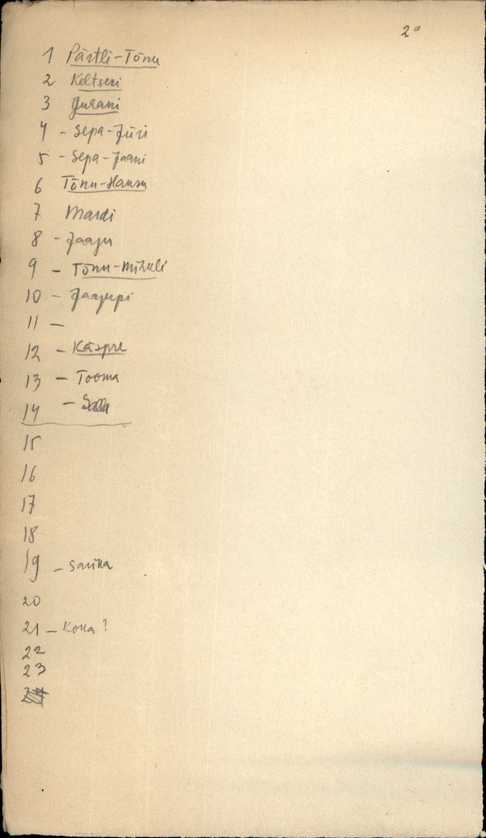 2
1 Pärtli-Tõnu
2 Keltseri
3 Jurani
4 - Sepa-Jüri
5 - Sepa-Jaani
6 Tõnu-Hansu
7 Mardi
8 - Jaagu
9 - Tõnu-Mihkli
10 - Jaagupi
11 -
12 - Kaspre
13 - Tooma
14 -
15
16
17
18
19 - Sauna
20
21 - Kona ?
22
23